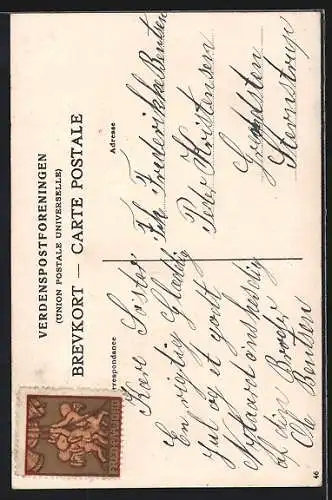 VERDENSPOSTFORENINGEN
(UNION POSTALE UNIVERSELLE)
BREVKORT — CARTE POSTALE
Correspondance
Adresse
Kære Søster
En rigtig Glædelig
Jul og et godt
Nytaar ønskes dig
af din Broder
Ole Bentsen
Frk Frederikke Bentsen
Peder Kristensen
Sternstrup
46